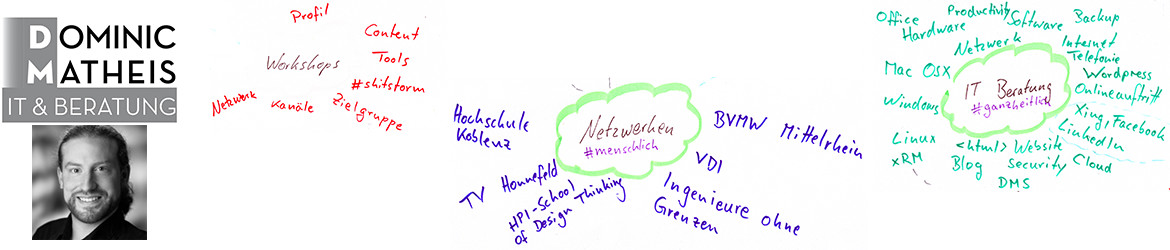 DOMINIC
MATHEIS
IT & BERATUNG
Profil
Content
Workshops
Tools
#shitstorm
Netzwerk
Kanäle
Zielgruppe
Hochschule
Koblenz
Netzwerken
#menschlich
BVMW Mittelrhein
TV Honnefeld
HPI-School
of Design Thinking
VDI
Ingenieure ohne
Grenzen
Office
Productivity
Software
Backup
Hardware
Netzwerk
Internet
Telefonie
Mac OSX
Wordpress
IT Beratung
#ganzheitlich
Onlineauftritt
Windows
Xing, Facebook
LinkedIn
Linux
<html> Website
xRM
Blog
Security
Cloud
DMS